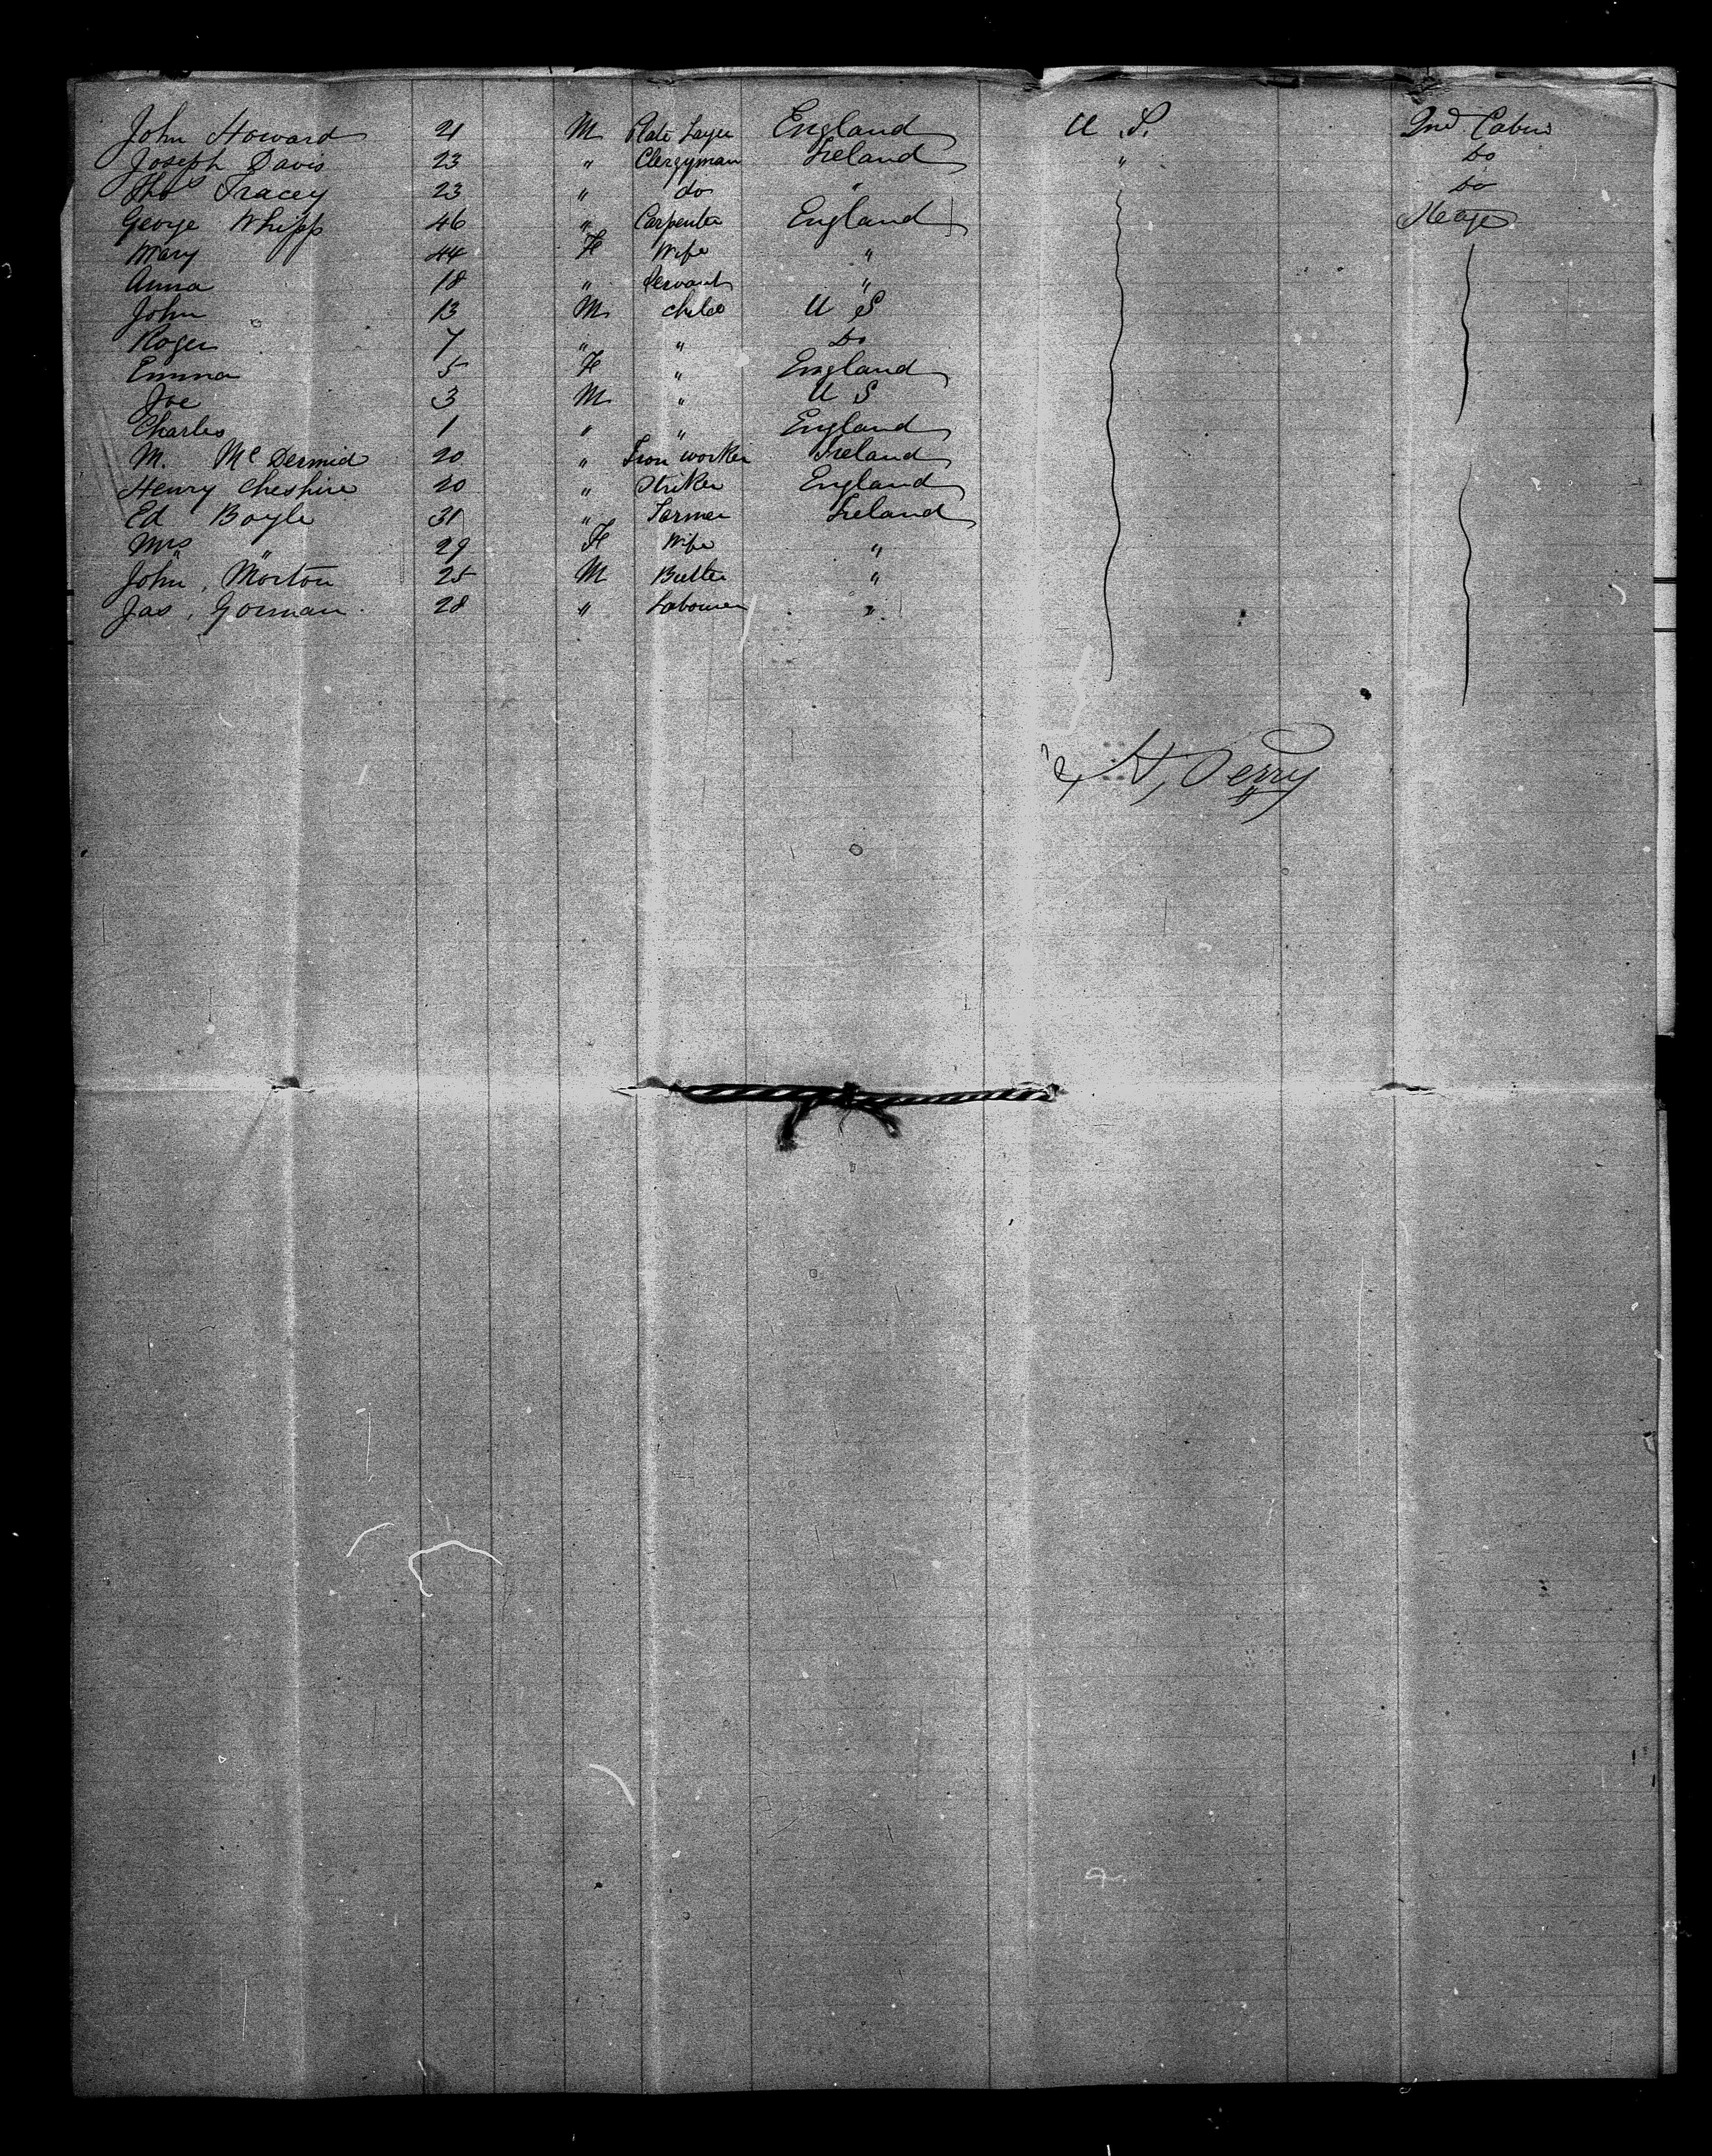 John Howard 21 M Plate Layer England U.S. 2nd Cabin
Joseph Davis 23 " Clergyman Ireland " Do
Thos Tracey 23 " do " Do
George Whipp 46 " Carpenter England Steage
Mary 44 F Wife "
Anna 18 " Servant "
John 13 M Child U S
Roger 7 " " Do
Emma 5 F " England
Joe 3 M " U S
Charles 1 " " England
M. McDermid 20 " Iron worker Ireland
Henry Cheshire 20 " Striker England
Ed Boyle 31 " Farmer Ireland
Mrs " 29 F Wife "
John, Morton 25 M Butler "
Jas, Gorman 28 " Labourer "
H, Perry